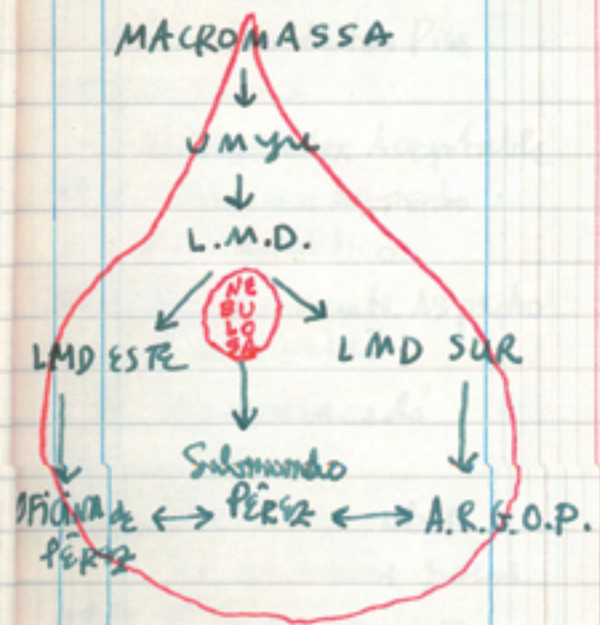 MACROMASSA
Umyu
L.M.D.
NE
BU
LO
SA
LMD ESTE
LMD SUR
Submundo
PÉREZ
Oficina de
PÉREZ
A.R.G.O.P.